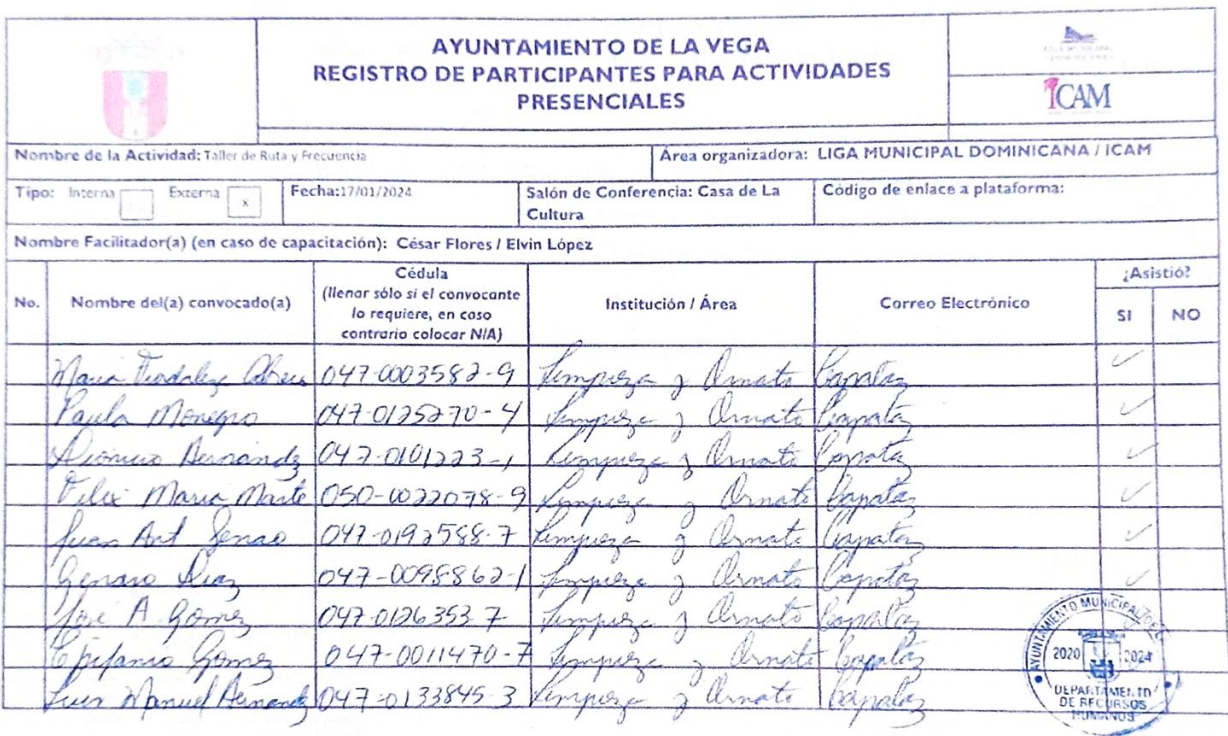 AYUNTAMIENTO DE LA VEGA
REGISTRO DE PARTICIPANTES PARA ACTIVIDADES
PRESENCIALES
ICAM
Nombre de la Actividad: Taller de Ruta y Frecuencia
Área organizadora: LIGA MUNICIPAL DOMINICANA / ICAM
Tipo: Interna Externa x
Fecha:17/01/2024
Salón de Conferencia: Casa de La
Cultura
Código de enlace a plataforma:
Nombre Facilitador(a) (en caso de capacitación): César Flores / Elvin López
No.
Nombre del(a) convocado(a)
Cédula
(llenar sólo si el convocante
lo requiere, en caso
contrario colocar N/A)
Institución / Área
Correo Electrónico
¿Asistió?
SI NO
Maria 047-0003582-9 Limpieza y Ornato Capataz
Paula Monegro 047-0125270-4 Limpieza y Ornato Capataz
Dionicio Hernandz 047-0101223-1 Limpieza y Ornato Capataz
Felix Maria Marte 050-0022078-9 Limpieza y Ornato Capataz
Juan Ant 047-0192588-7 Limpieza y Ornato Capataz
Genaro Diaz 047-0098862-1 Limpieza y Ornato Capataz
Jose A Gomez 047-0126353 7 Limpieza y Ornato Capataz
Epifanio Gomez 047-0011470-7 Limpieza y Ornato Capataz
Luis Manuel Hernandz 047-0133845-3 Limpieza y Ornato Capataz
AYUNTAMIENTO MUNICIPAL
2020 2024
DEPARTAMENTO
DE RECURSOS
HUMANOS